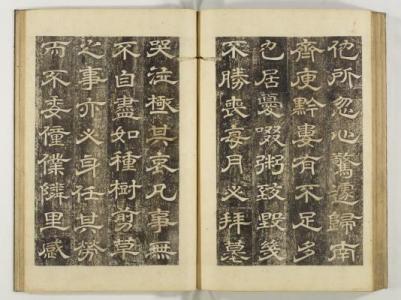 他所忽心驚遽歸南
齊庾黔婁有不足多
也居憂啜粥致毀幾
不勝喪每月必拜墓
哭泣極其哀凡事無
不自盡如種樹剪草
之事亦必身任其勞
而不委僮僕隣里感